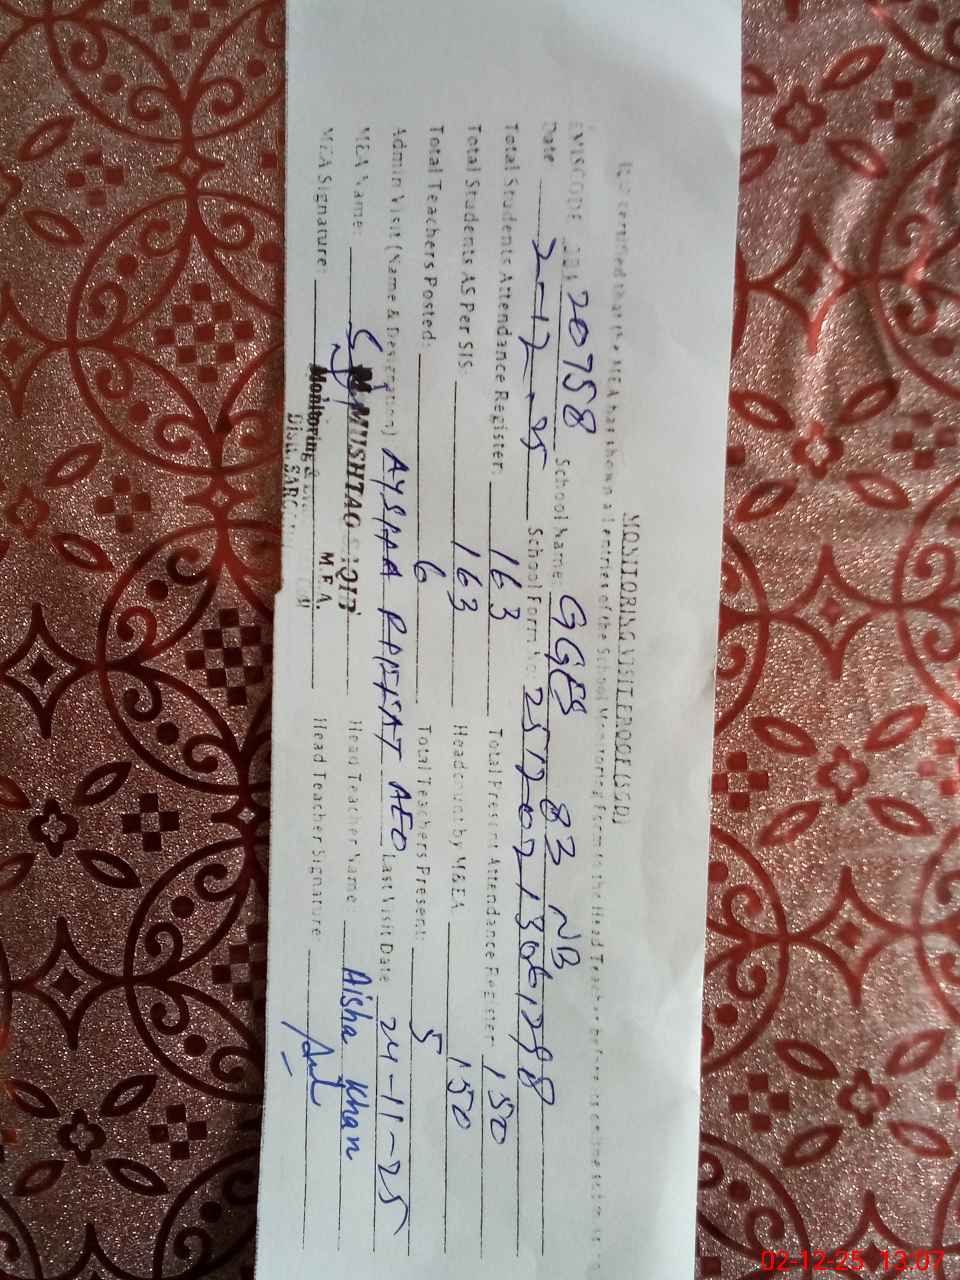 MONITORING VISIT ERDOCF (SSD)
It is certified that the MEA has shown all entries of the School Monitoring Form to the Head Teacher before
EMISCODE 20758 School Name: GGES 83 NB
Date: 2-12-25 School Form No:
Total Students Attendance Register: 163 Total Present Attendance Register 150
Total Students AS Per SIS: 163 Headcount by M&EA 150
Total Teachers Posted: 6 Total Teachers Present: 5
Admin Visit (Name & Designation) AYSHA RAFFAT AEO Last Visit Date 24-11-25
MEA Name: M. MUSHTAQ SAQIB Head Teacher Name: Aisha Khan
M.E.A.
MEA Signature: Head Teacher Signature:
Monitoring &
Distt. SARG
02-12-25 13:07